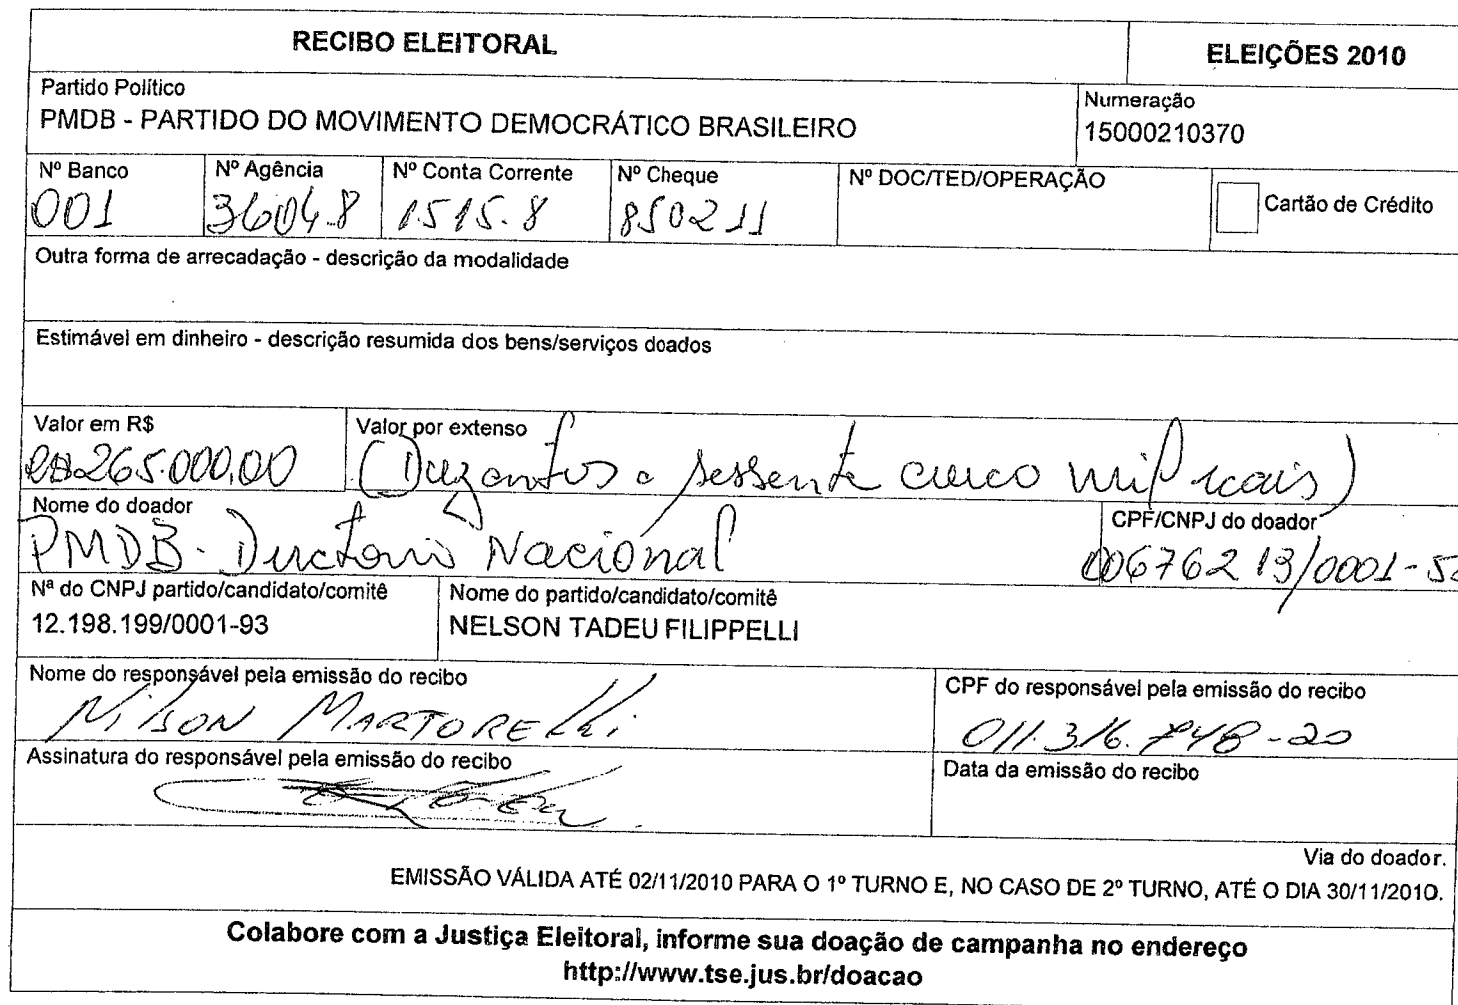 RECIBO ELEITORAL
ELEIÇÕES 2010
Partido Político
PMDB - PARTIDO DO MOVIMENTO DEMOCRÁTICO BRASILEIRO
Numeração
15000210370
Nº Banco
001
Nº Agência
3604.8
Nº Conta Corrente
1.515.8
Nº Cheque
850211
Nº DOC/TED/OPERAÇÃO
Cartão de Crédito
Outra forma de arrecadação - descrição da modalidade
Estimável em dinheiro - descrição resumida dos bens/serviços doados
Valor em R$
265.000,00
Valor por extenso
(Duzentos e sessenta cinco mil reais)
Nome do doador
PMDB - Diretorio Nacional
CPF/CNPJ do doador
00676213/0001-
Nª do CNPJ partido/candidato/comitê
12.198.199/0001-93
Nome do partido/candidato/comitê
NELSON TADEU FILIPPELLI
Nome do responsável pela emissão do recibo
Nilson MARTORELLi
CPF do responsável pela emissão do recibo
011.316.748-20
Assinatura do responsável pela emissão do recibo
Data da emissão do recibo
Via do doador.
EMISSÃO VÁLIDA ATÉ 02/11/2010 PARA O 1º TURNO E, NO CASO DE 2º TURNO, ATÉ O DIA 30/11/2010.
Colabore com a Justiça Eleitoral, informe sua doação de campanha no endereço
http://www.tse.jus.br/doacao